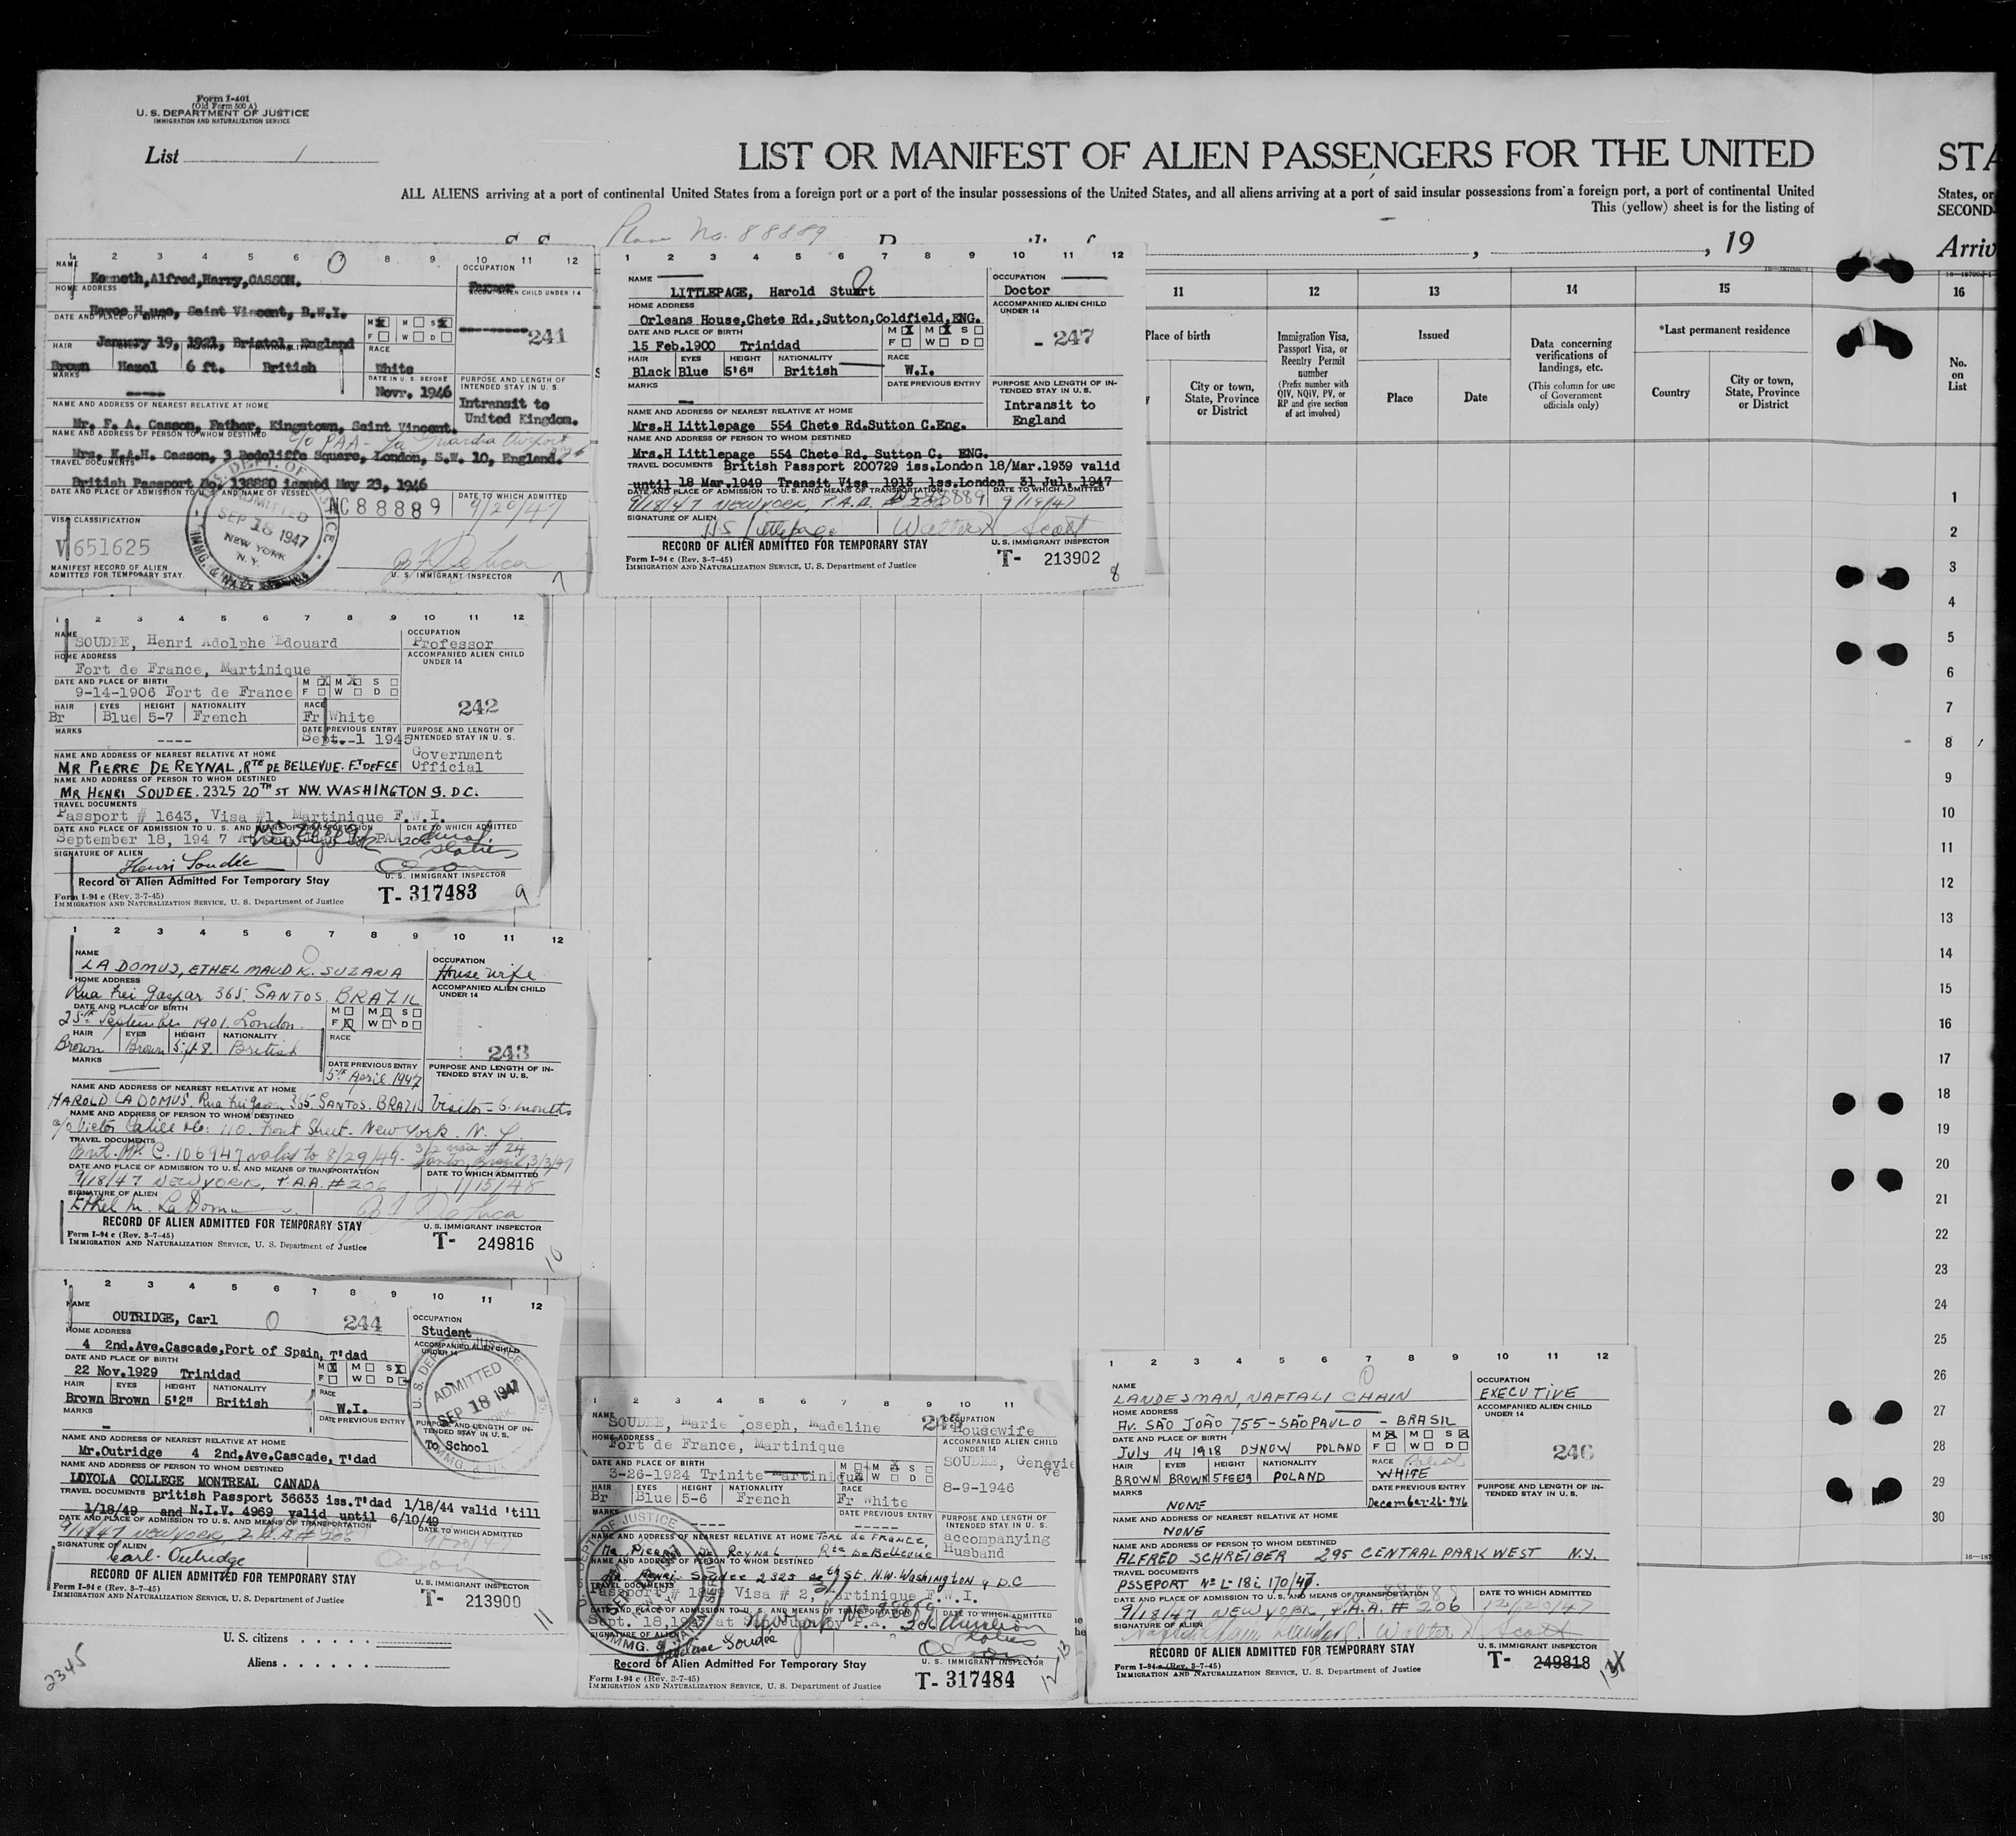 Form I-401
(Old Form 500 A)
U. S. DEPARTMENT OF JUSTICE
IMMIGRATION AND NATURALIZATION SERVICE
List 1
LIST OR MANIFEST OF ALIEN PASSENGERS FOR THE UNITED
STA
ALL ALIENS arriving at a port of continental United States from a foreign port or a port of the insular possessions of the United States, and all aliens arriving at a port of said insular possessions from a foreign port, a port of continental United
States, or
This (yellow) sheet is for the listing of
SECOND
Plane No. 88889
, 19
Arriv
1 2 3 4 5 6 8 9 10 11 12
NAME
Kenneth,Alfred,Harry,CASSON.
OCCUPATION
Farmer
HOME ADDRESS
House, Saint Vincent, B.W.I.
DATE AND PLACE OF BIRTH
January 19, 1921, Bristol, England
M F M W S D
241
HAIR
RACE
Brown Hazel 6 ft. British White
MARKS
DATE IN U. S. BEFORE
Novr. 1946
PURPOSE AND LENGTH OF INTENDED STAY IN U. S.
Intransit to United Kingdom.
NAME AND ADDRESS OF NEAREST RELATIVE AT HOME
Mr. F. A. Casson, Father, Kingstown, Saint Vincent.
NAME AND ADDRESS OF PERSON TO WHOM DESTINED
c/o PAA - La Guardia Airport
Mrs. K.A.H. Casson, 3 Redcliffe Square, London, S.W. 10, England.
TRAVEL DOCUMENTS
British Passport No. 138880 issued May 23, 1946
DATE AND PLACE OF ADMISSION TO U. S. AND NAME OF VESSEL
NC 88889
DATE TO WHICH ADMITTED
9/20/47
ADMITTED
SEP 18 1947
NEW YORK
N. Y.
VISA CLASSIFICATION
V 651625
MANIFEST RECORD OF ALIEN
ADMITTED FOR TEMPORARY STAY.
U. S. IMMIGRANT INSPECTOR
7
1 2 3 4 5 6 7 8 9 10 11 12
NAME
LITTLEPAGE, Harold Stuart
OCCUPATION
Doctor
HOME ADDRESS
Orleans House,Chete Rd.,Sutton,Coldfield,ENG.
ACCOMPANIED ALIEN CHILD UNDER 14
DATE AND PLACE OF BIRTH
15 Feb.1900 Trinidad
M F M W S D
- 247
HAIR EYES HEIGHT NATIONALITY RACE
Black Blue 5'6" British W.I.
MARKS
DATE PREVIOUS ENTRY
PURPOSE AND LENGTH OF INTENDED STAY IN U. S.
Intransit to England
NAME AND ADDRESS OF NEAREST RELATIVE AT HOME
Mrs.H Littlepage 554 Chete Rd.Sutton C.Eng.
NAME AND ADDRESS OF PERSON TO WHOM DESTINED
Mrs.H Littlepage 554 Chete Rd. Sutton C. ENG.
TRAVEL DOCUMENTS British Passport 200729 iss.London 18/Mar.1939 valid
until 18 Mar.1949 Transit Visa 1913 iss.London 31 Jul, 1947
DATE AND PLACE OF ADMISSION TO U. S. AND MEANS OF TRANSPORTATION
DATE TO WHICH ADMITTED
9/18/47 NEW YORK P.A.A. # 9/18/47
SIGNATURE OF ALIEN
H.S. Littlepage
Walter Scott
RECORD OF ALIEN ADMITTED FOR TEMPORARY STAY
U. S. IMMIGRANT INSPECTOR
Form I-94 c (Rev. 3-7-45)
IMMIGRATION AND NATURALIZATION SERVICE, U. S. Department of Justice
T- 213902
8
11 12 13 14 15 16
Place of birth
City or town, State, Province or District
Immigration Visa, Passport Visa, or Reentry Permit number
(Prefix number with QIV, NQIV, PV, or RP and give section of act involved)
Issued
Place Date
Data concerning verifications of landings, etc.
(This column for use of Government officials only)
*Last permanent residence
Country
City or town, State, Province or District
No. on List
1
2
3
4
5
6
7
8
9
10
11
12
13
14
15
16
17
18
19
20
21
22
23
24
25
26
27
28
29
30
1 2 3 4 5 6 7 8 9 10 11 12
NAME
SOUDEE, Henri Adolphe Edouard
OCCUPATION
Professor
HOME ADDRESS
Fort de France, Martinique
ACCOMPANIED ALIEN CHILD UNDER 14
DATE AND PLACE OF BIRTH
9-14-1906 Fort de France
M F M W S D
242
HAIR EYES HEIGHT NATIONALITY RACE
Br Blue 5-7 French Fr White
MARKS
----
DATE PREVIOUS ENTRY
Sept. 1 1945
PURPOSE AND LENGTH OF INTENDED STAY IN U. S.
Government Official
NAME AND ADDRESS OF NEAREST RELATIVE AT HOME
MR PIERRE DE REYNAL, RTE DE BELLEVUE. FT DE FCE
NAME AND ADDRESS OF PERSON TO WHOM DESTINED
MR HENRI SOUDEE. 2325 20TH ST NW. WASHINGTON 9. D.C.
TRAVEL DOCUMENTS
Passport # 1643. Visa #1, Martinique F.W.I.
DATE AND PLACE OF ADMISSION TO U. S. AND MEANS OF TRANSPORTATION
DATE TO WHICH ADMITTED
September 18, 194 7 PAA 206
SIGNATURE OF ALIEN
Henri Soudée
U. S. IMMIGRANT INSPECTOR
Record of Alien Admitted For Temporary Stay
Form I-94 c (Rev. 3-7-45)
IMMIGRATION AND NATURALIZATION SERVICE, U. S. Department of Justice
T- 317483
9
1 2 3 4 5 6 7 8 9 10 11 12
NAME
LA DOMUS, ETHEL MAUD K. SUZANA
OCCUPATION
House wife
HOME ADDRESS
Rua Frei Gaspar 365. SANTOS. BRAZIL
ACCOMPANIED ALIEN CHILD UNDER 14
DATE AND PLACE OF BIRTH
25th September 1901. London.
M F M W S D
243
HAIR EYES HEIGHT NATIONALITY RACE
Brown Brown 5ft 8. British
MARKS
DATE PREVIOUS ENTRY
5th April 1947
PURPOSE AND LENGTH OF INTENDED STAY IN U. S.
NAME AND ADDRESS OF NEAREST RELATIVE AT HOME
HAROLD LA DOMUS. Rua Frei Gaspar 365. SANTOS. BRAZIL Visitor - 6 months
NAME AND ADDRESS OF PERSON TO WHOM DESTINED
c/o Victor Co: 110. Front Street. New York. N. Y.
TRAVEL DOCUMENTS
C. 106947 valid to 8/29/49 - 3/2 visa # 24
Santos, Brazil, 3/3/47
DATE AND PLACE OF ADMISSION TO U. S. AND MEANS OF TRANSPORTATION
DATE TO WHICH ADMITTED
9/18/47 NEW YORK, P.A.A. # 206 1/15/48
SIGNATURE OF ALIEN
Ethel M. La Domus
RECORD OF ALIEN ADMITTED FOR TEMPORARY STAY
U. S. IMMIGRANT INSPECTOR
Form I-94 c (Rev. 3-7-45)
IMMIGRATION AND NATURALIZATION SERVICE, U. S. Department of Justice
T- 249816
10
1 2 3 4 5 6 7 8 9 10 11 12
NAME
OUTRIDGE, Carl
244
OCCUPATION
Student
HOME ADDRESS
4 2nd.Ave.Cascade,Port of Spain, T'dad
ACCOMPANIED ALIEN CHILD UNDER 14
DATE AND PLACE OF BIRTH
22 Nov.1929 Trinidad
M F M W S D
ADMITTED
SEP 18 1947
HAIR EYES HEIGHT NATIONALITY RACE
Brown Brown 5'2" British W.I.
MARKS
DATE PREVIOUS ENTRY
PURPOSE AND LENGTH OF INTENDED STAY IN U. S.
To School
NAME AND ADDRESS OF NEAREST RELATIVE AT HOME
Mr.Outridge 4 2nd,Ave,Cascade, T'dad
NAME AND ADDRESS OF PERSON TO WHOM DESTINED
LOYOLA COLLEGE MONTREAL CANADA
TRAVEL DOCUMENTS British Passport 36633 iss.T'dad 1/18/44 valid 'till
1/18/49 and N.I.V. 4969 valid until 6/10/49
DATE AND PLACE OF ADMISSION TO U. S. AND MEANS OF TRANSPORTATION
DATE TO WHICH ADMITTED
9/18/47 NEW YORK, P.A.A. # 206
SIGNATURE OF ALIEN
Carl. Outridge
RECORD OF ALIEN ADMITTED FOR TEMPORARY STAY
U. S. IMMIGRANT INSPECTOR
Form I-94 c (Rev. 3-7-45)
IMMIGRATION AND NATURALIZATION SERVICE, U. S. Department of Justice
T- 213900
11
U.S. citizens . . . . .
Aliens . . . . . .
2345
1 2 3 4 5 6 7 8 9 10 11
NAME
SOUDEE, Marie Joseph, Madeline
245
OCCUPATION
Housewife
HOME ADDRESS
Fort de France, Martinique
ACCOMPANIED ALIEN CHILD UNDER 14
SOUDEE, Genevieve
8-9-1946
DATE AND PLACE OF BIRTH
3-26-1924 Trinite Martinique
M F M W S D
HAIR EYES HEIGHT NATIONALITY RACE
Br Blue 5-6 French Fr White
MARKS
----
DATE PREVIOUS ENTRY
-----
PURPOSE AND LENGTH OF INTENDED STAY IN U. S.
accompanying Husband
NAME AND ADDRESS OF NEAREST RELATIVE AT HOME Fort de FRANCE,
Mr Pierre de Reynal Rte de Bellevue
NAME AND ADDRESS OF PERSON TO WHOM DESTINED
Mr Henri Soudee 2325 20th St. N.W. Washington 9 D.C
TRAVEL DOCUMENTS
Passport # Visa # 2, Martinique F.W.I.
DATE AND PLACE OF ADMISSION TO U. S. AND MEANS OF TRANSPORTATION
DATE TO WHICH ADMITTED
Sept. 18, 1947 at New York 206
SIGNATURE OF ALIEN
Madeleine Soudée
U. S. IMMIGRANT INSPECTOR
Record of Alien Admitted For Temporary Stay
Form I-94 c (Rev. 3-7-45)
IMMIGRATION AND NATURALIZATION SERVICE, U. S. Department of Justice
T- 317484
12 13
1 2 3 4 5 6 7 8 9 10 11 12
NAME
LANDESMAN, NAFTALI CHAIN
OCCUPATION
EXECUTIVE
HOME ADDRESS
AV. SÃO JOÃO 755 - SÃO PAULO - BRASIL
ACCOMPANIED ALIEN CHILD UNDER 14
DATE AND PLACE OF BIRTH
July 14 1918 DYNOW POLAND
M F M W S D
246
HAIR EYES HEIGHT NATIONALITY RACE
BROWN BROWN 5 FEET 9 POLAND WHITE
MARKS
NONE
DATE PREVIOUS ENTRY
December-26-946
PURPOSE AND LENGTH OF INTENDED STAY IN U. S.
NAME AND ADDRESS OF NEAREST RELATIVE AT HOME
NONE
NAME AND ADDRESS OF PERSON TO WHOM DESTINED
ALFRED SCHREIBER 295 CENTRAL PARK WEST N.Y.
TRAVEL DOCUMENTS
PSSEPORT Nº L-18i 170/47.
DATE AND PLACE OF ADMISSION TO U. S. AND MEANS OF TRANSPORTATION
DATE TO WHICH ADMITTED
9/18/47 NEW YORK, P.A.A. # 206 12/20/47
SIGNATURE OF ALIEN
Walter Scott
RECORD OF ALIEN ADMITTED FOR TEMPORARY STAY
U. S. IMMIGRANT INSPECTOR
Form I-94 c (Rev. 3-7-45)
IMMIGRATION AND NATURALIZATION SERVICE, U. S. Department of Justice
T- 249818